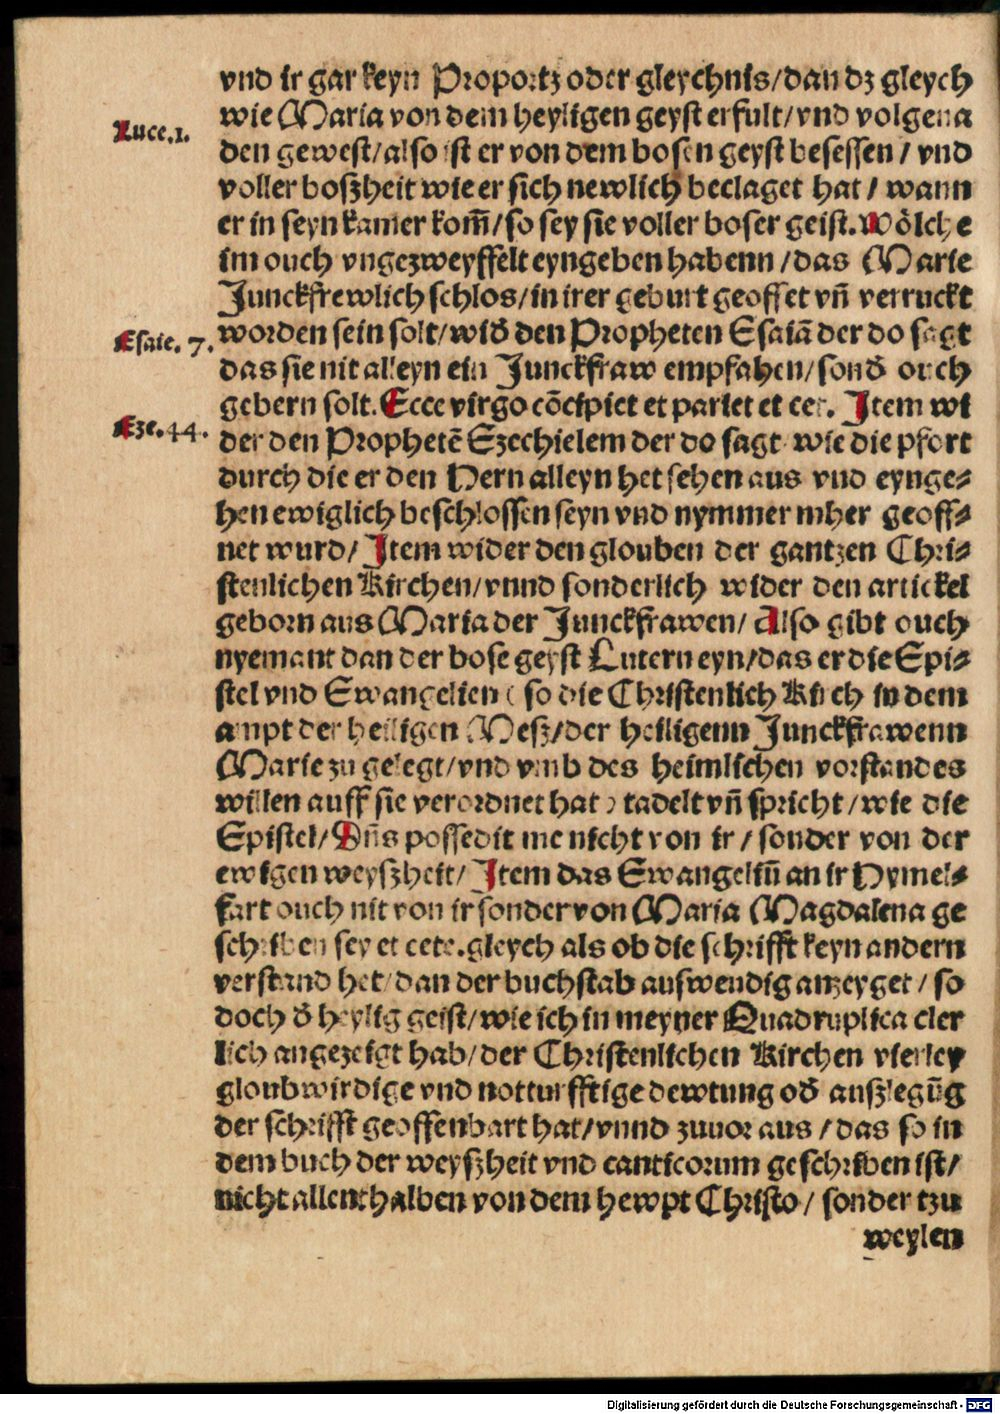 vnd ir gar keyn Proportz oder gleychnis/dan dz gleych
wie Maria von dem heyligen geyst erfult/vnd volgena
Luce.1.
den gewest/also ist er von dem bosen geyst besessen/vnd
voller boszheit wie er sich newlich beclaget hat/wann
er in seyn kamer kom̄/so sey sie voller boser geist. Wölche
im ouch vngezweyffelt eyngeben habenn/das Marie
Junckfrewlich schlos/in irer geburt geoffet vn̄ verruckt
Esaie. 7.
worden sein solt/wid̕ den Propheten Esaiā der do sagt
das sie nit alleyn ein Junckfraw empfahen/sond̕ ouch
gebern solt. Ecce virgo cōcipiet et pariet et cet. Item wi
Eze.44.
der den Prophetē Ezechielem der do sagt wie die pfort
durch die er den Hern alleyn het sehen aus vnd eynge⸗
hen ewiglich beschlossen seyn vnd nymmer mher geoff⸗
net wurd/Item wider den glouben der gantzen Chri⸗
stenlichen Kirchen/vnnd sonderlich wider den artickel
geborn aus Maria der Junckfrawen/Also gibt ouch
nyemant dan der bose geyst Lutern eyn/das er die Epi⸗
stel vnd Ewangelien (so die Christenlich Kirch in dem
ampt der heiligen Mesz/der heiligenn Junckfrawenn
Marie zu gelegt/vnd vmb des heimlichen vorstandes
willen auff sie verordnet hat) tadelt vn̄ spricht/wie die
Epistel/Dn̄s possedit me nicht von ir/sonder von der
ewigen weyszheit/Item das Ewangeliū an ir Hymel⸗
fart ouch nit von ir sonder von Maria Magdalena ge
schriben sey et cete. gleych als ob die schrifft keyn andern
verstand het/dan der buchstab auswendig anzeyget/so
doch d̕ heylig geist/wie ich in meyner Quadruplica cler
lich angezeigt hab/der Christenlichen Kirchen vierley
gloubwirdige vnd notturfftige dewtung od̕ auszlegūg
der schrifft geoffenbart hat/vnnd zuuor aus/das so in
dem buch der weyszheit vnd canticorum geschriben ist/
nicht allenthalben von dem hewpt Christo/sonder tzu
weylen
Digitalisierung gefördert durch die Deutsche Forschungsgemeinschaft - DFG